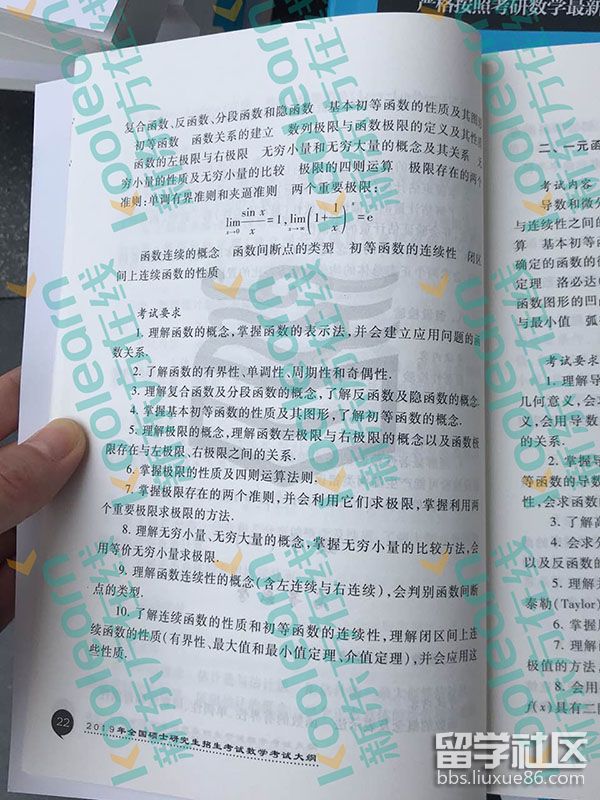 严格按照考研数学最新
复合函数、反函数、分段函数和隐函数 基本初等函数的性质及其图形
初等函数 函数关系的建立 数列极限与函数极限的定义及其性质
函数的左极限与右极限 无穷小量和无穷大量的概念及其关系 无
穷小量的性质及无穷小量的比较 极限的四则运算 极限存在的两个
准则:单调有界准则和夹逼准则 两个重要极限:
lim x→0 sin x / x = 1, lim x→∞ (1 + 1/x)^x = e
函数连续的概念 函数间断点的类型 初等函数的连续性 闭区
间上连续函数的性质
考试要求
1. 理解函数的概念,掌握函数的表示法,并会建立应用问题的函
数关系.
2. 了解函数的有界性、单调性、周期性和奇偶性.
3. 理解复合函数及分段函数的概念,了解反函数及隐函数的概念.
4. 掌握基本初等函数的性质及其图形,了解初等函数的概念.
5. 理解极限的概念,理解函数左极限与右极限的概念以及函数极
限存在与左极限、右极限之间的关系.
6. 掌握极限的性质及四则运算法则.
7. 掌握极限存在的两个准则,并会利用它们求极限,掌握利用两
个重要极限求极限的方法.
8. 理解无穷小量、无穷大量的概念,掌握无穷小量的比较方法,会
用等价无穷小量求极限.
9. 理解函数连续性的概念(含左连续与右连续),会判别函数间断
点的类型.
10. 了解连续函数的性质和初等函数的连续性,理解闭区间上连
续函数的性质(有界性、最大值和最小值定理、介值定理),并会应用这
些性质.
22
2019年全国硕士研究生招生考试数学考试大纲
二、一元函
考试内容
导数和微分
与连续性之间的
算 基本初等函
确定的函数的微
定理 洛必达(
函数图形的凹凸
与最小值 弧
考试要求
1. 理解导
几何意义,会求
义,会用导数
的关系.
2. 掌握导
等函数的导数
性,会求函数
3. 了解高
4. 会求分
以及反函数的
5. 理解并
泰勒(Taylor)
6. 掌握用
7. 理解
极值的方法,
8. 会用
f(x)具有二阶
koolearn 新东方在线
留学社区
bbs.liuxue86.com